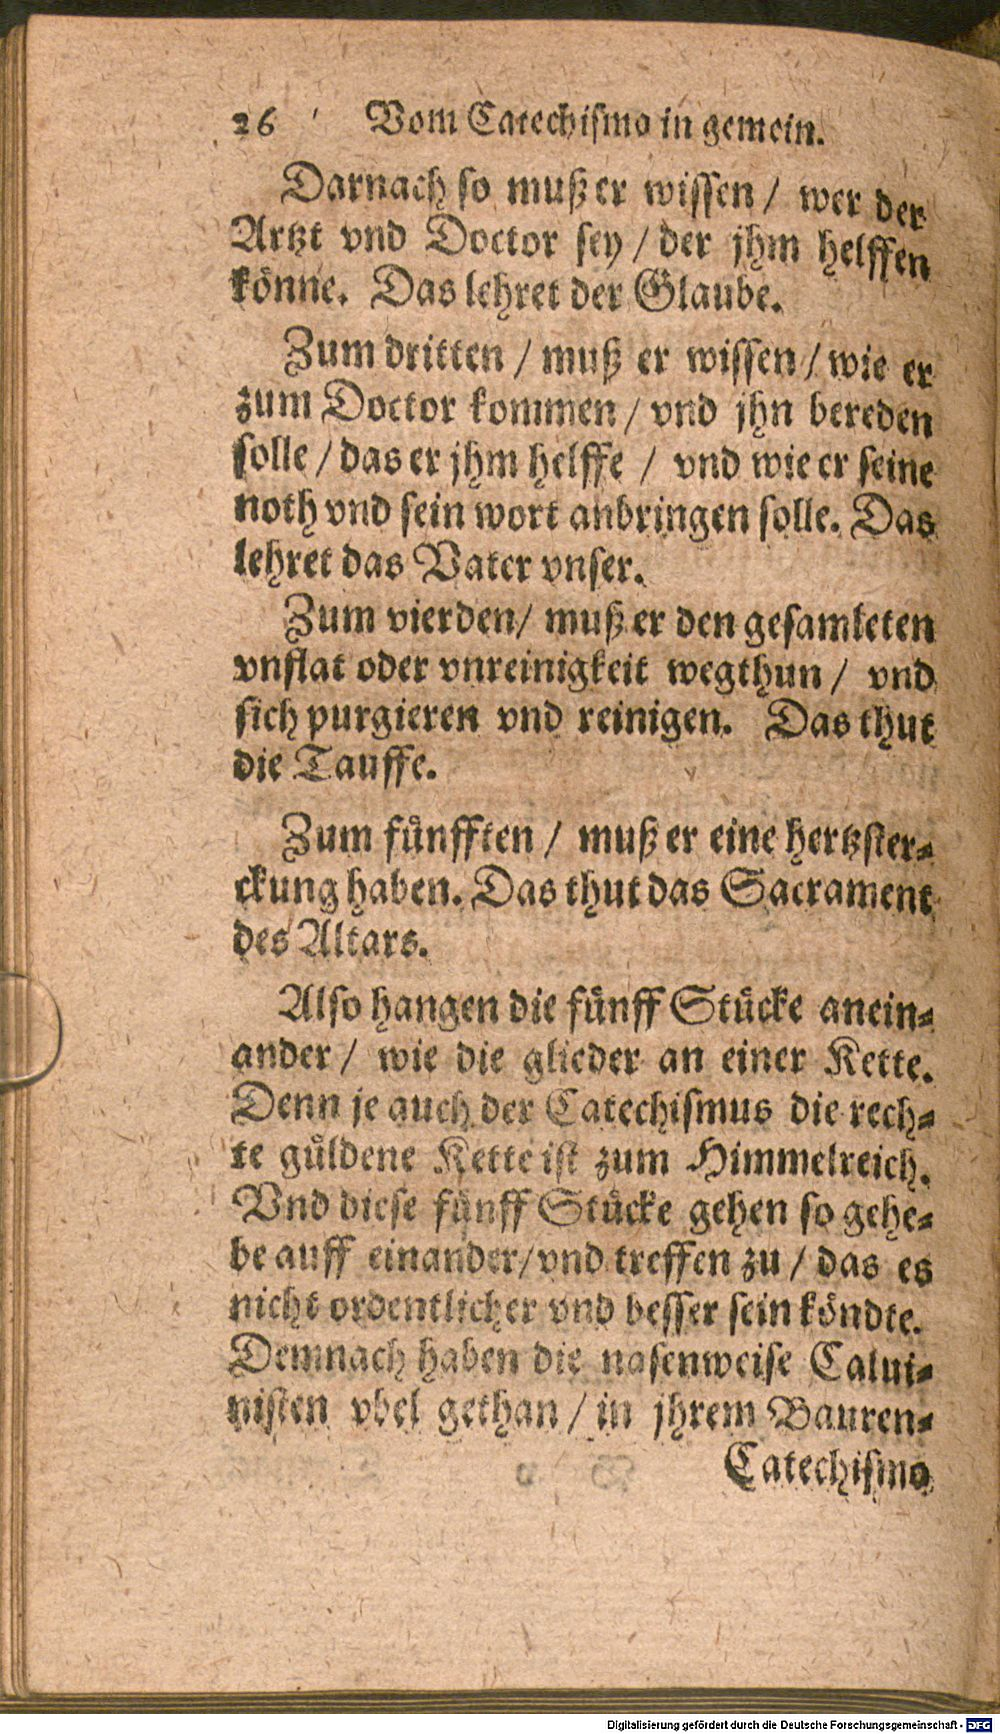 26 Vom Catechiſmo in gemein.
Darnach ſo muß er wiſſen / wer der
Artzt vnd Doctor ſey / der jhm helffen
koͤnne. Das lehret der Glaube.
Zum dritten / muß er wiſſen / wie er
zum Doctor kommen / vnd jhn bereden
ſolle / das er jhm helffe / vnd wie er ſeine
noth vnd ſein wort anbringen ſolle. Das
lehret das Vater vnſer.
Zum vierden / muß er den geſamleten
vnflat oder vnreinigkeit wegthun / vnd
ſich purgieren vnd reinigen. Das thut
die Tauffe.
Zum fuͤnfften / muß er eine hertzſter⸗
ckung haben. Das thut das Sacrament
des Altars.
Alſo hangen die fuͤnff Stuͤcke anein⸗
ander / wie die glieder an einer Kette.
Denn je auch der Catechiſmus die rech⸗
te guͤldene Kette iſt zum Himmelreich.
Vnd dieſe fuͤnff Stuͤcke gehen ſo gehe⸗
be auff einander / vnd treffen zu / das es
nicht ordentlicher vnd beſſer ſein koͤndte.
Demnach haben die naſenweiſe Calui⸗
niſten vbel gethan / in jhrem Bauren⸗
Catechiſmo
Digitalisierung gefördert durch die Deutsche Forschungsgemeinschaft - DFG